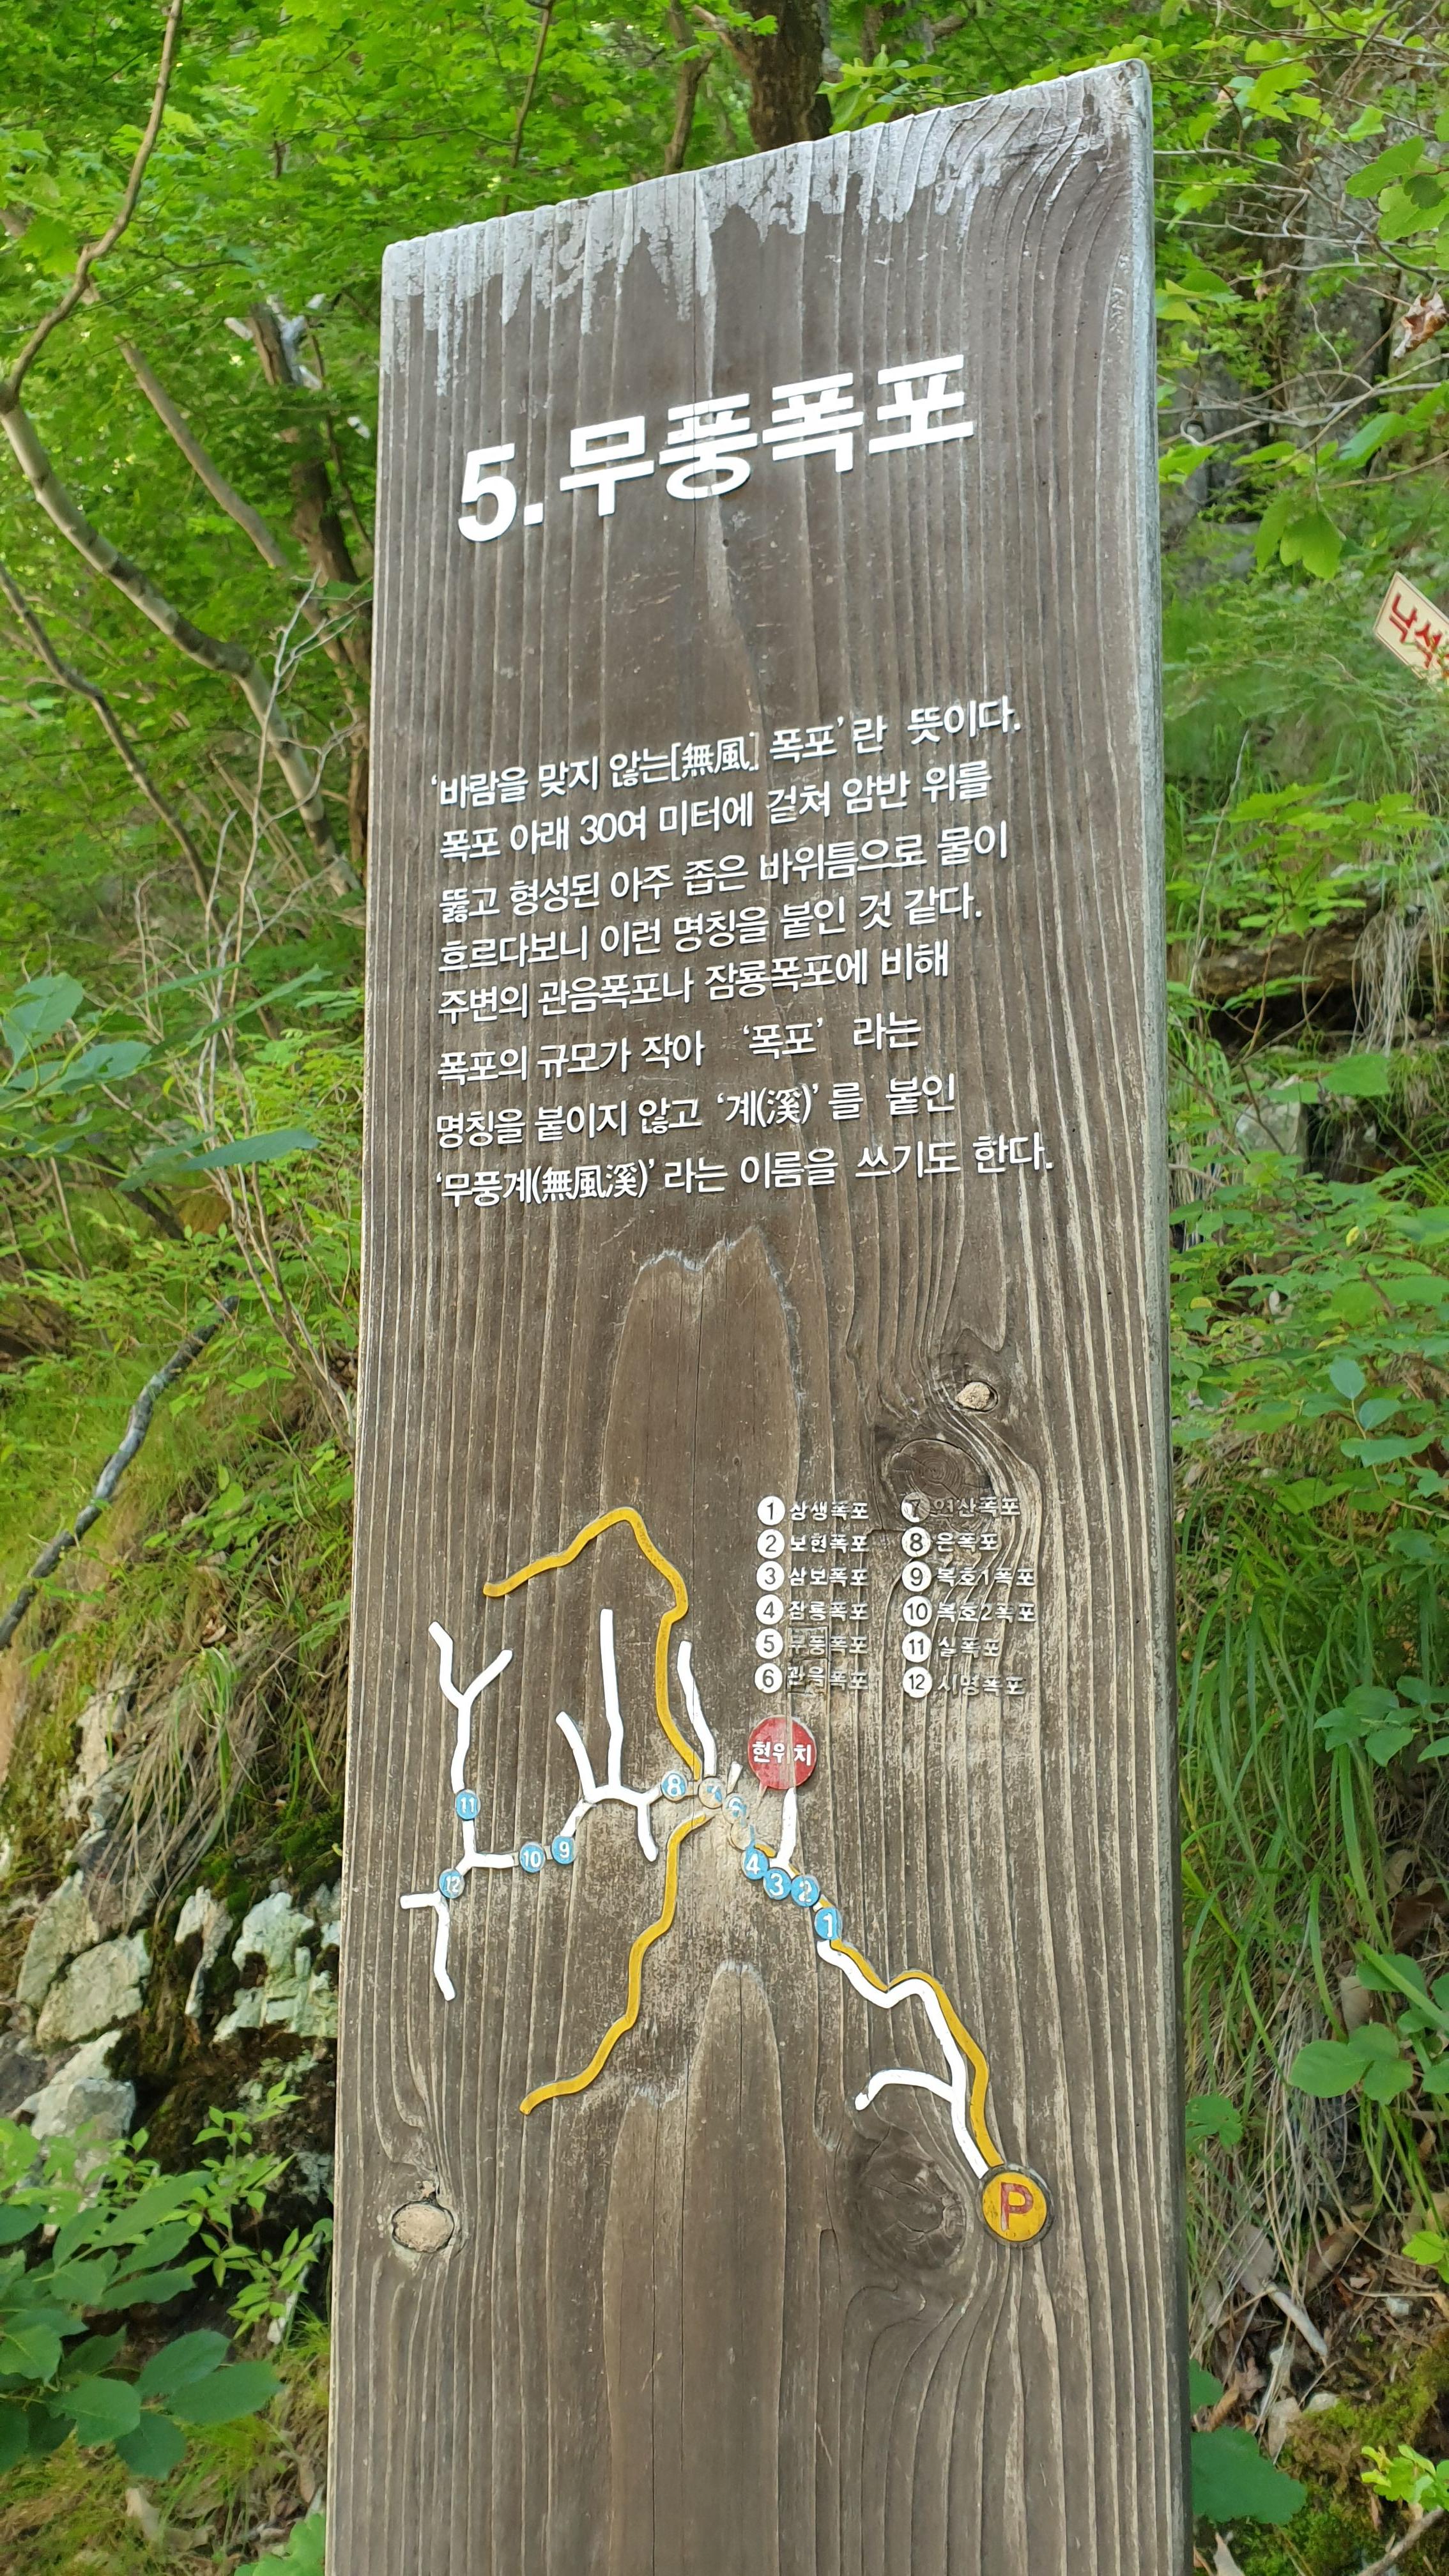 5.무풍폭포
낙석
'바람을 맞지 않는[無風] 폭포'란 뜻이다.
폭포 아래 30여 미터에 걸쳐 암반 위를
뚫고 형성된 아주 좁은 바위틈으로 물이
흐르다보니 이런 명칭을 붙인 것 같다.
주변의 관음폭포나 잠룡폭포에 비해
폭포의 규모가 작아 '폭포' 라는
명칭을 붙이지 않고 '계(溪)'를 붙인
'무풍계(無風溪)'라는 이름을 쓰기도 한다.
1 상생폭포
2 보현폭포
3 삼보폭포
4 잠룡폭포
5 무풍폭포
6 관음폭포
7 연산폭포
8 은폭포
9 복호1폭포
10 복호2폭포
11 실폭포
12 시명폭포
현위치
8
7
6
11
10
9
4
12
3
2
1
P